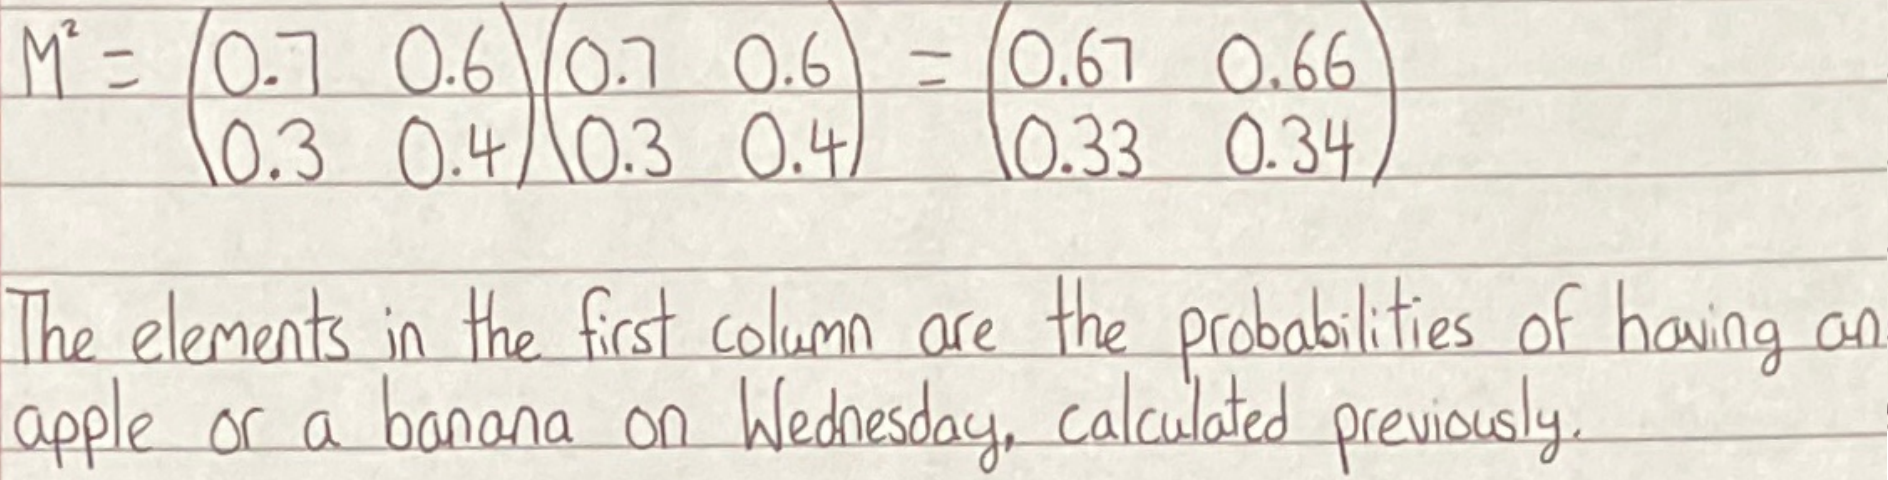 M² = (0.7 0.6)(0.7 0.6) = (0.67 0.66)
(0.3 0.4)(0.3 0.4) (0.33 0.34)
The elements in the first column are the probabilities of having an
apple or a banana on Wednesday, calculated previously.